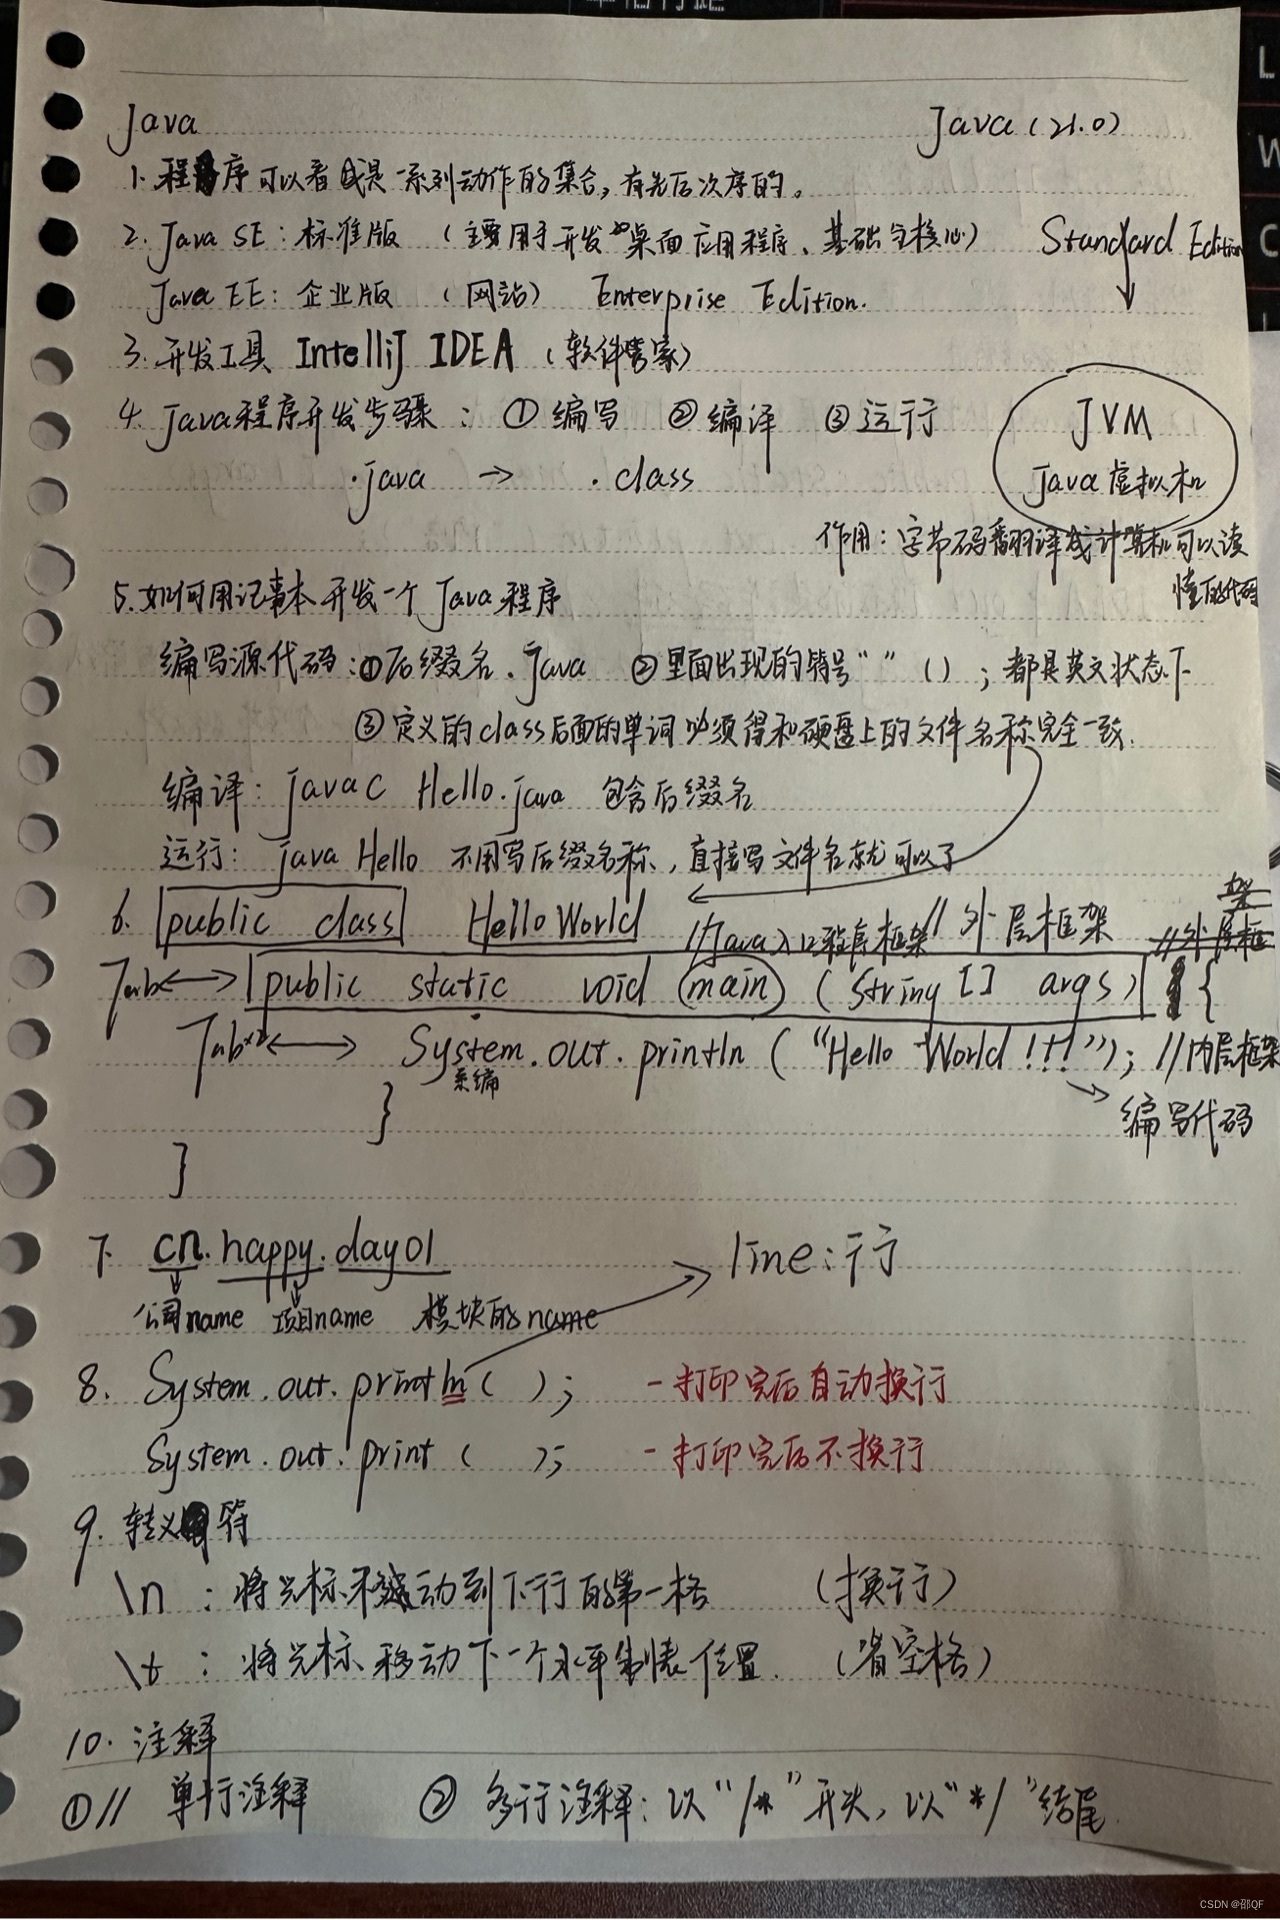 Java Java (21.0)
1. 程序可以看成是一系列动作的集合，有先后次序的。
2. Java SE：标准版 （主要用于开发 桌面应用程序、基础与核心） Standard Edition
Java EE：企业版 （网站） Enterprise Edition.
3. 开发工具 IntelliJ IDEA（软件管家）
4. Java程序开发步骤：①编写 ②编译 ③运行 JVM
.java → .class Java 虚拟机
作用：字节码翻译成计算机可以读
懂的代码
5. 如何用记事本开发一个 Java 程序
编写源代码：①后缀名.java ②里面出现的符号“ ” （） ；都是英文状态下
③定义的class后面的单词必须得和硬盘上的文件名称完全一致.
编译：javac Hello.java 包含后缀名
运行：java Hello 不用写后缀名称，直接写文件名就可以了
架
6. public class HelloWorld //Java入口程序框架 // 外层框架 //外层框
Tab ←→ public static void main (String [] args) {
Tab*2 ←→ System.out.println (“Hello World !!!”); //内层框架
系编
} → 编写代码
}
7. cn.happy.day01 line：行
公司name 项目name 模块的name
8. System.out.println ( ); －打印完后自动换行
System.out.print ( ); －打印完后不换行
9. 转义符
\n ：将光标移动到下行的第一格 （换行）
\t ：将光标移动下一个水平制表位置. （省空格）
10. 注释
①// 单行注释 ② 多行注释：以“/*”开头，以“*/”结尾.
CSDN @邵QF